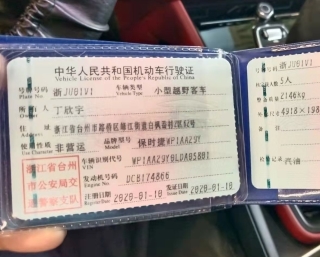 中华人民共和国机动车行驶证
Vehicle License of the People's Republic of China
号牌号码 浙JU01V1 车辆类型 小型越野客车
Plate No. Vehicle Type
所有人 丁欣宇
Owner
住址 浙江省台州市路桥区
Address
使用性质 非营运 品牌型号 保时捷WP1AA29Y
Use Character Model
浙江省台州
市公安局交
通警察支队
车辆识别代号
VIN WP1AA29Y9LDA05801
发动机号码 DCB174866
Engine No.
注册日期 2020-01-10 发证日期 2020-01-10
Register Date Issue Date
号牌号码 浙JU01V1
5人
2146kg
4918×198
汽油